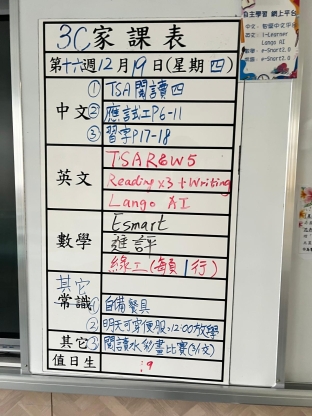 3C家課表
第十六週12月19日(星期四)
中文 ① TSA閱讀四
② 應試工P6-11
③ 習字P17-18
英文 TSA R&W 5
Reading x3 + Writing
Lango AI
數學 Esmart
進評
綫工(每頁1行)
其它
常識 ① 自備餐具
② 明天可穿便服,12:00放學
其它 ③ 閱讀水彩畫比賽(3/文)
值日生 :9
自主學習 網上平台
i-Learner
Lango AI
e-Smart2.0
e-Smart2.0